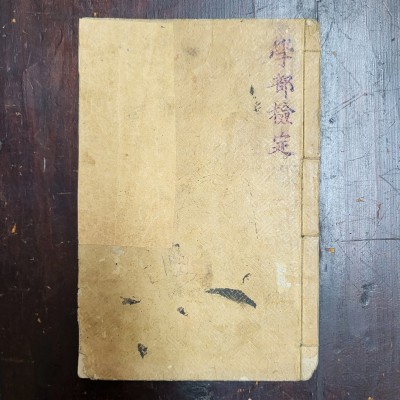 學部檢定